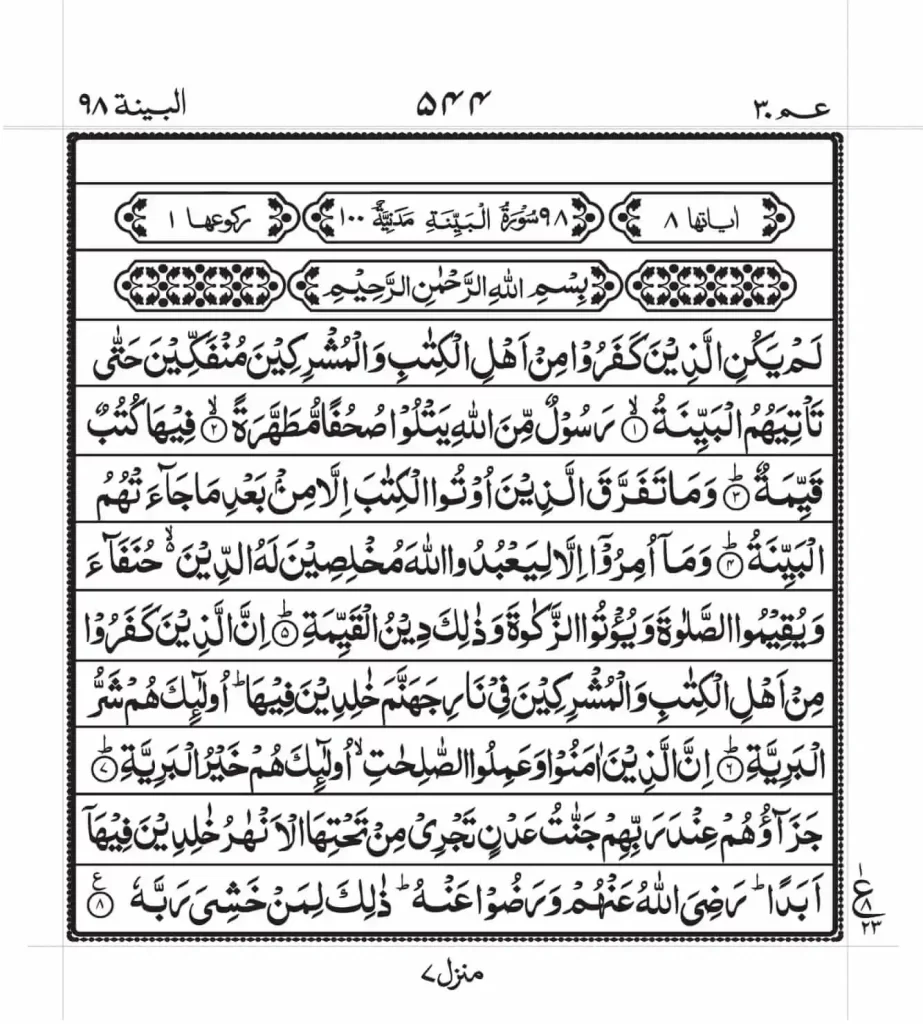 عم ٣٠
۵۴۴
البينة ٩٨
اٰیاتها ٨
٩٨ سُوْرَةُ الْبَیِّنَةِ مَدَنِیَّةٌ ١٠٠
رکوعها ١
بِسْمِ اللهِ الرَّحْمٰنِ الرَّحِیْمِ
لَمْ یَكُنِ الَّذِیْنَ كَفَرُوْا مِنْ اَهْلِ الْكِتٰبِ وَالْمُشْرِكِیْنَ مُنْفَكِّیْنَ حَتّٰی
تَاْتِیَهُمُ الْبَیِّنَةُ ۙ﴿١﴾ رَسُوْلٌ مِّنَ اللهِ یَتْلُوْا صُحُفًا مُّطَهَّرَةً ۙ﴿٢﴾ فِیْهَا كُتُبٌ
قَیِّمَةٌ ؕ﴿٣﴾ وَمَا تَفَرَّقَ الَّذِیْنَ اُوْتُوا الْكِتٰبَ اِلَّا مِنْۢ بَعْدِ مَا جَآءَتْهُمُ
الْبَیِّنَةُ ؕ﴿۴﴾ وَمَاۤ اُمِرُوْۤا اِلَّا لِیَعْبُدُوا اللهَ مُخْلِصِیْنَ لَهُ الدِّیْنَ ۙ۬ حُنَفَآءَ
وَیُقِیْمُوا الصَّلٰوةَ وَیُؤْتُوا الزَّكٰوةَ وَذٰلِكَ دِیْنُ الْقَیِّمَةِ ؕ﴿۵﴾ اِنَّ الَّذِیْنَ كَفَرُوْا
مِنْ اَهْلِ الْكِتٰبِ وَالْمُشْرِكِیْنَ فِیْ نَارِ جَهَنَّمَ خٰلِدِیْنَ فِیْهَا ؕ اُولٰٓئِكَ هُمْ شَرُّ
الْبَرِیَّةِ ؕ﴿٦﴾ اِنَّ الَّذِیْنَ اٰمَنُوْا وَعَمِلُوا الصّٰلِحٰتِ ۙ اُولٰٓئِكَ هُمْ خَیْرُ الْبَرِیَّةِ ؕ﴿٧﴾
جَزَآؤُهُمْ عِنْدَ رَبِّهِمْ جَنّٰتُ عَدْنٍ تَجْرِیْ مِنْ تَحْتِهَا الْاَنْهٰرُ خٰلِدِیْنَ فِیْهَاۤ
اَبَدًا ؕ رَضِیَ اللهُ عَنْهُمْ وَرَضُوْا عَنْهُ ؕ ذٰلِكَ لِمَنْ خَشِیَ رَبَّهٗ ﴿٨﴾
ع
٨
٢٣
منزل ٧